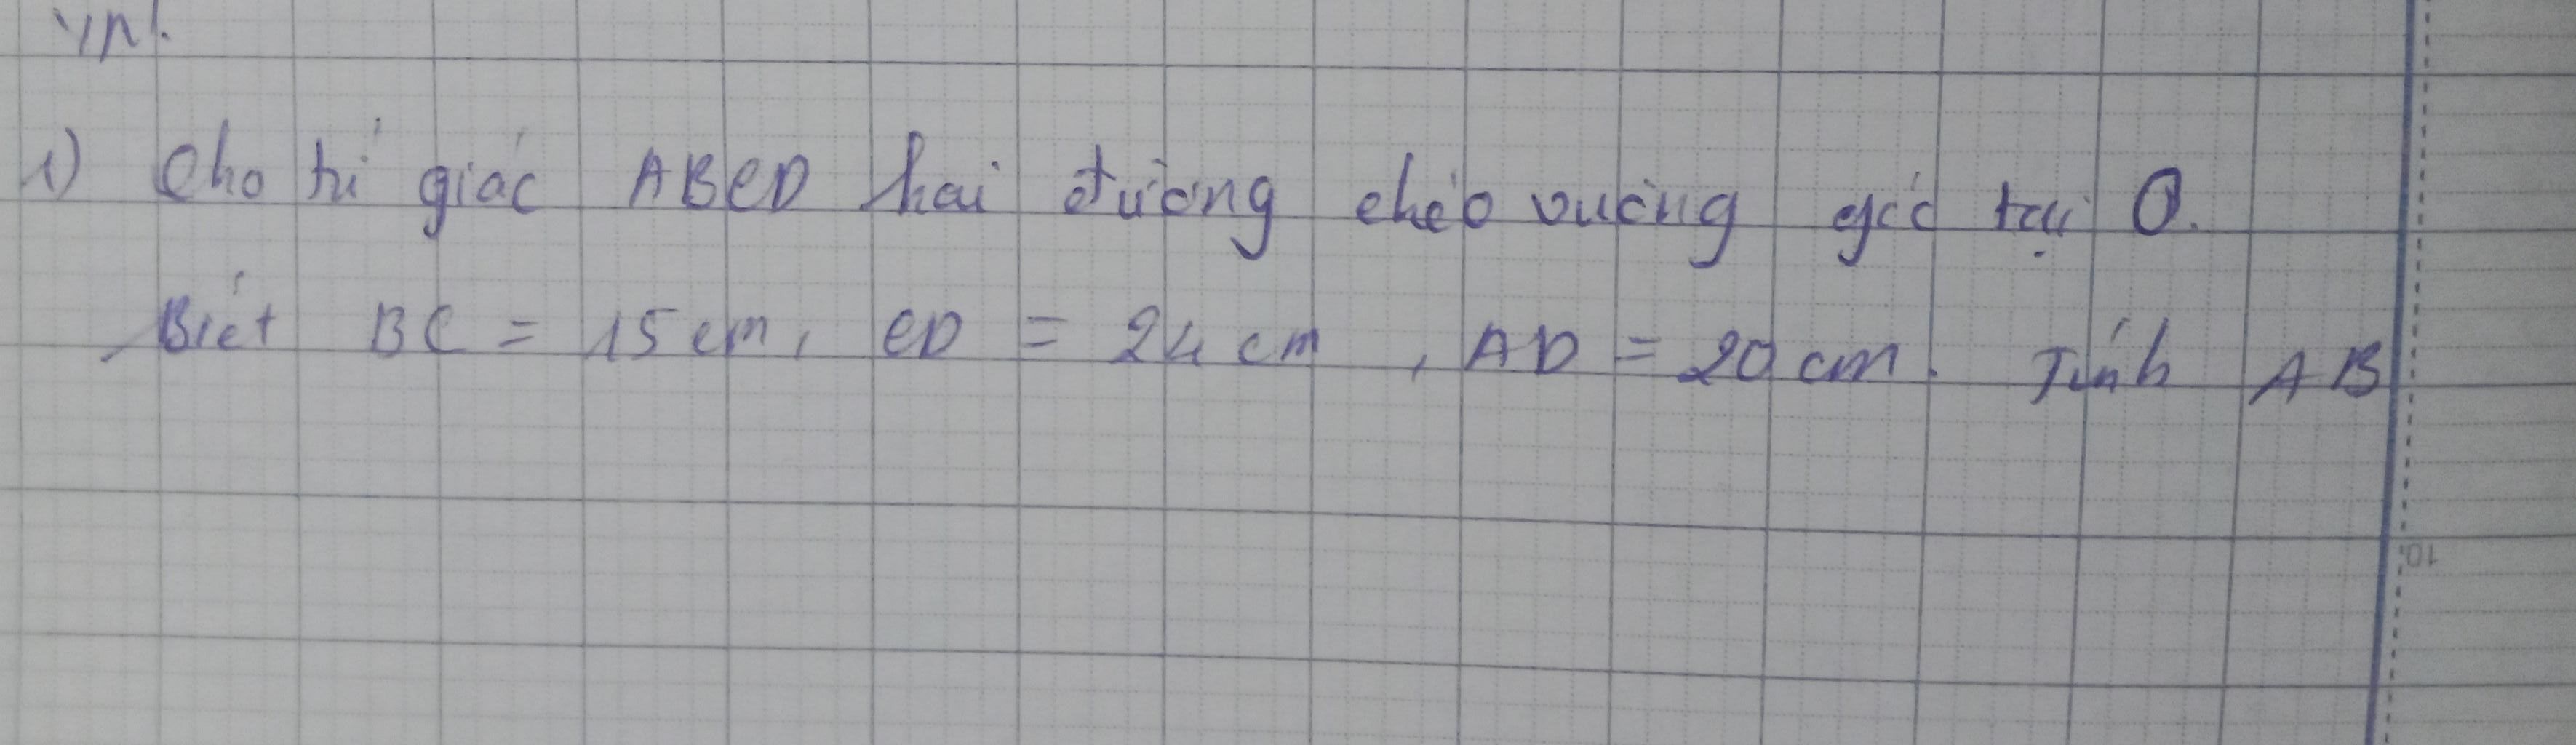 1) Cho tứ giác ABCD hai đường chéo vuông góc tại O.
Biết BC = 15 cm, CD = 24 cm, AD = 20 cm. Tính AB
10